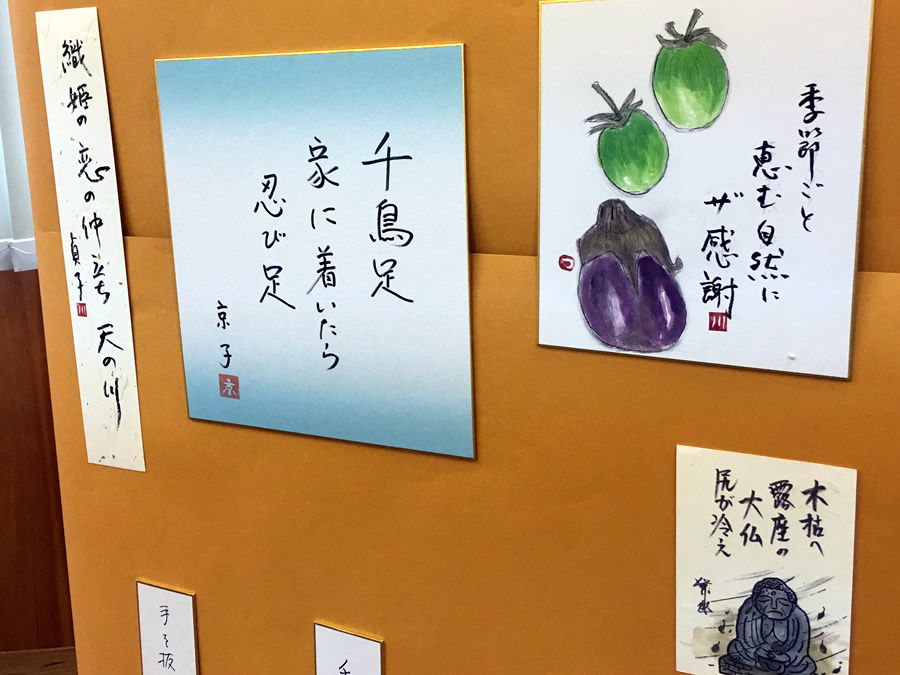 織姫の恋の仲立ち 天の川
貞子
川
千鳥足
家に着いたら
忍び足
京子
京
季節ごと
恵む自然に
ザ感謝
川
木枯へ
露座の
大仏
尻が冷え
手を抜